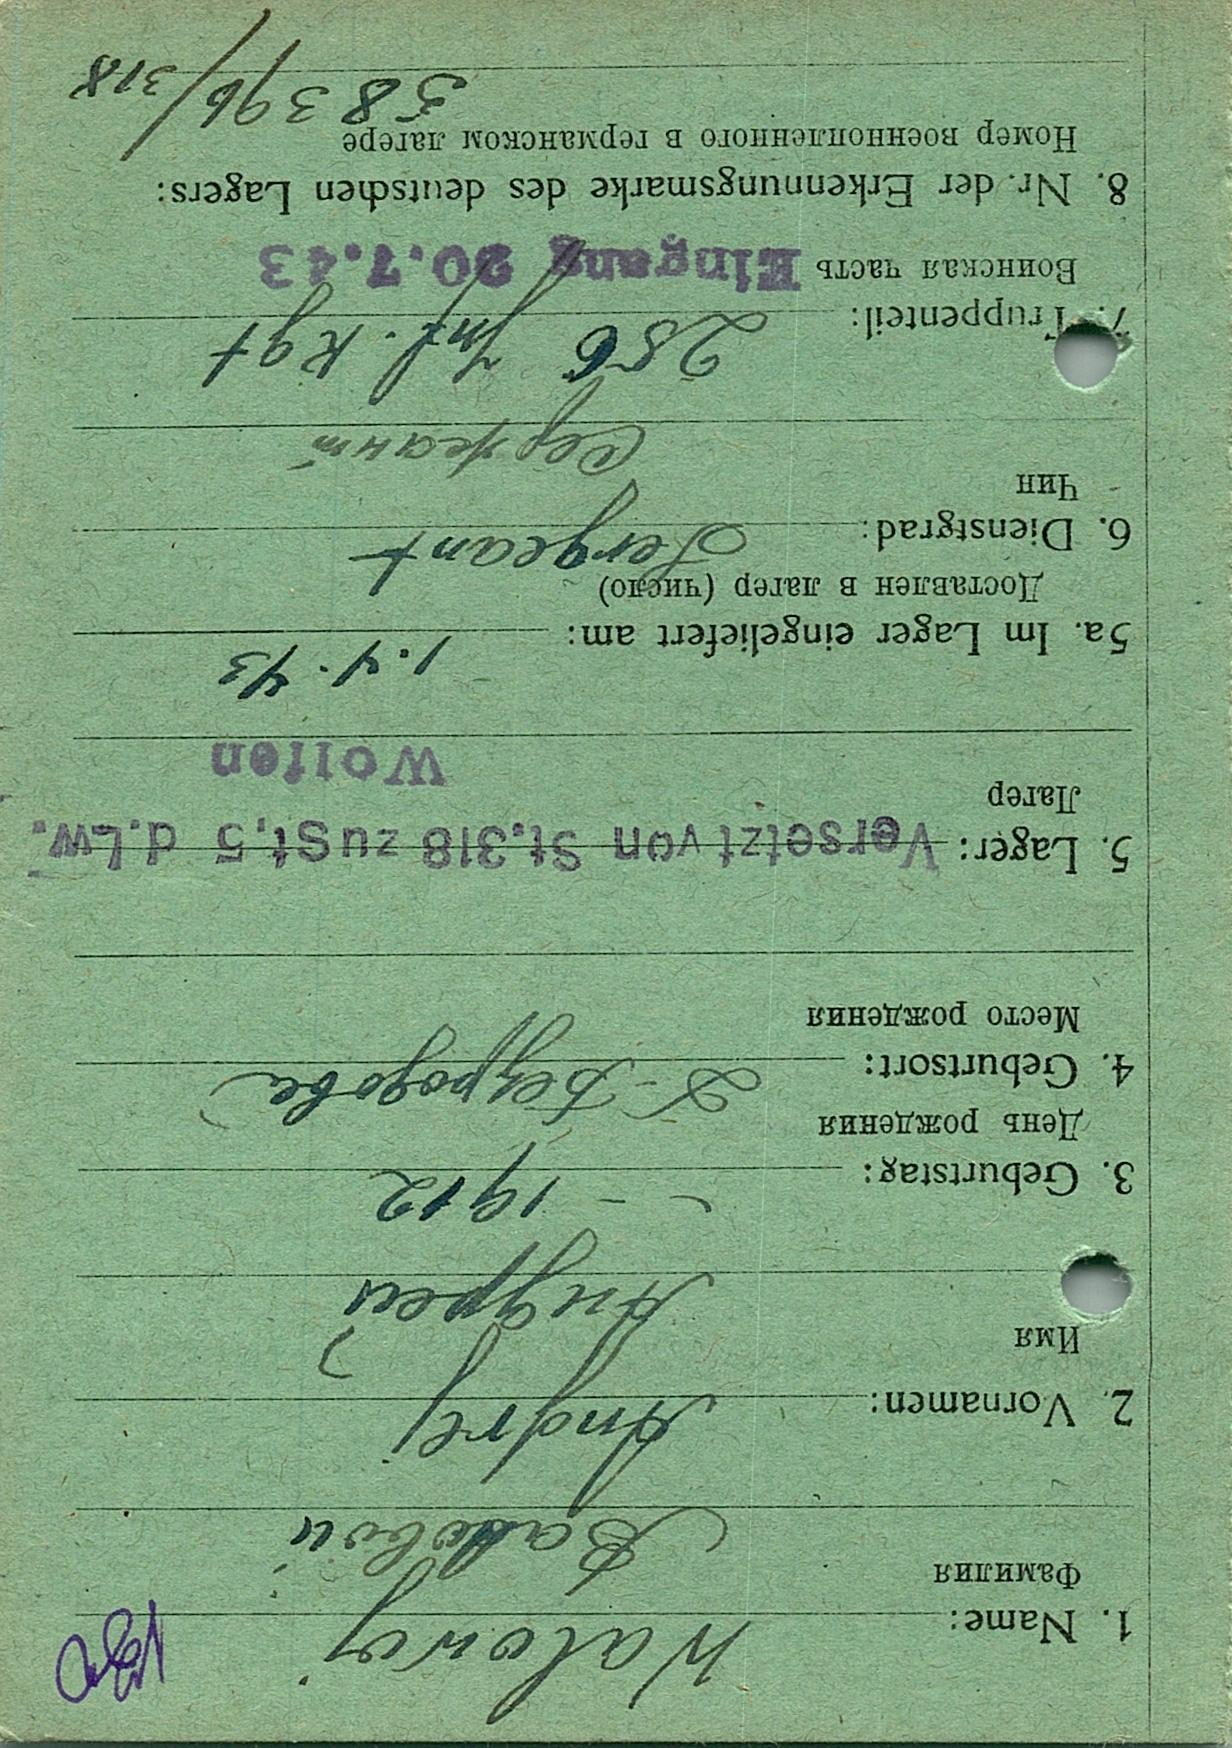 1. Name: Walowoj
Фамилия Валовой
2. Vornamen: Andrej
Имя Андрей
3. Geburtstag: - 1912
День рождения
4. Geburtsort:
Место рождения
5. Lager: Versetzt von St.318 zu St.5 d.Lw.
Лагер Wolfen
5a. Im Lager eingeliefert am: 1.4.43
Доставлен в лагер (число)
6. Dienstgrad: Sergeant
Чин Сержант
7. Truppenteil: 256 Inf. Rgt
Воинская часть Eingang 20.7.43
8. Nr. der Erkennungsmarke des deutschen Lagers:
Номер военнопленного в германском лагере
58396/318